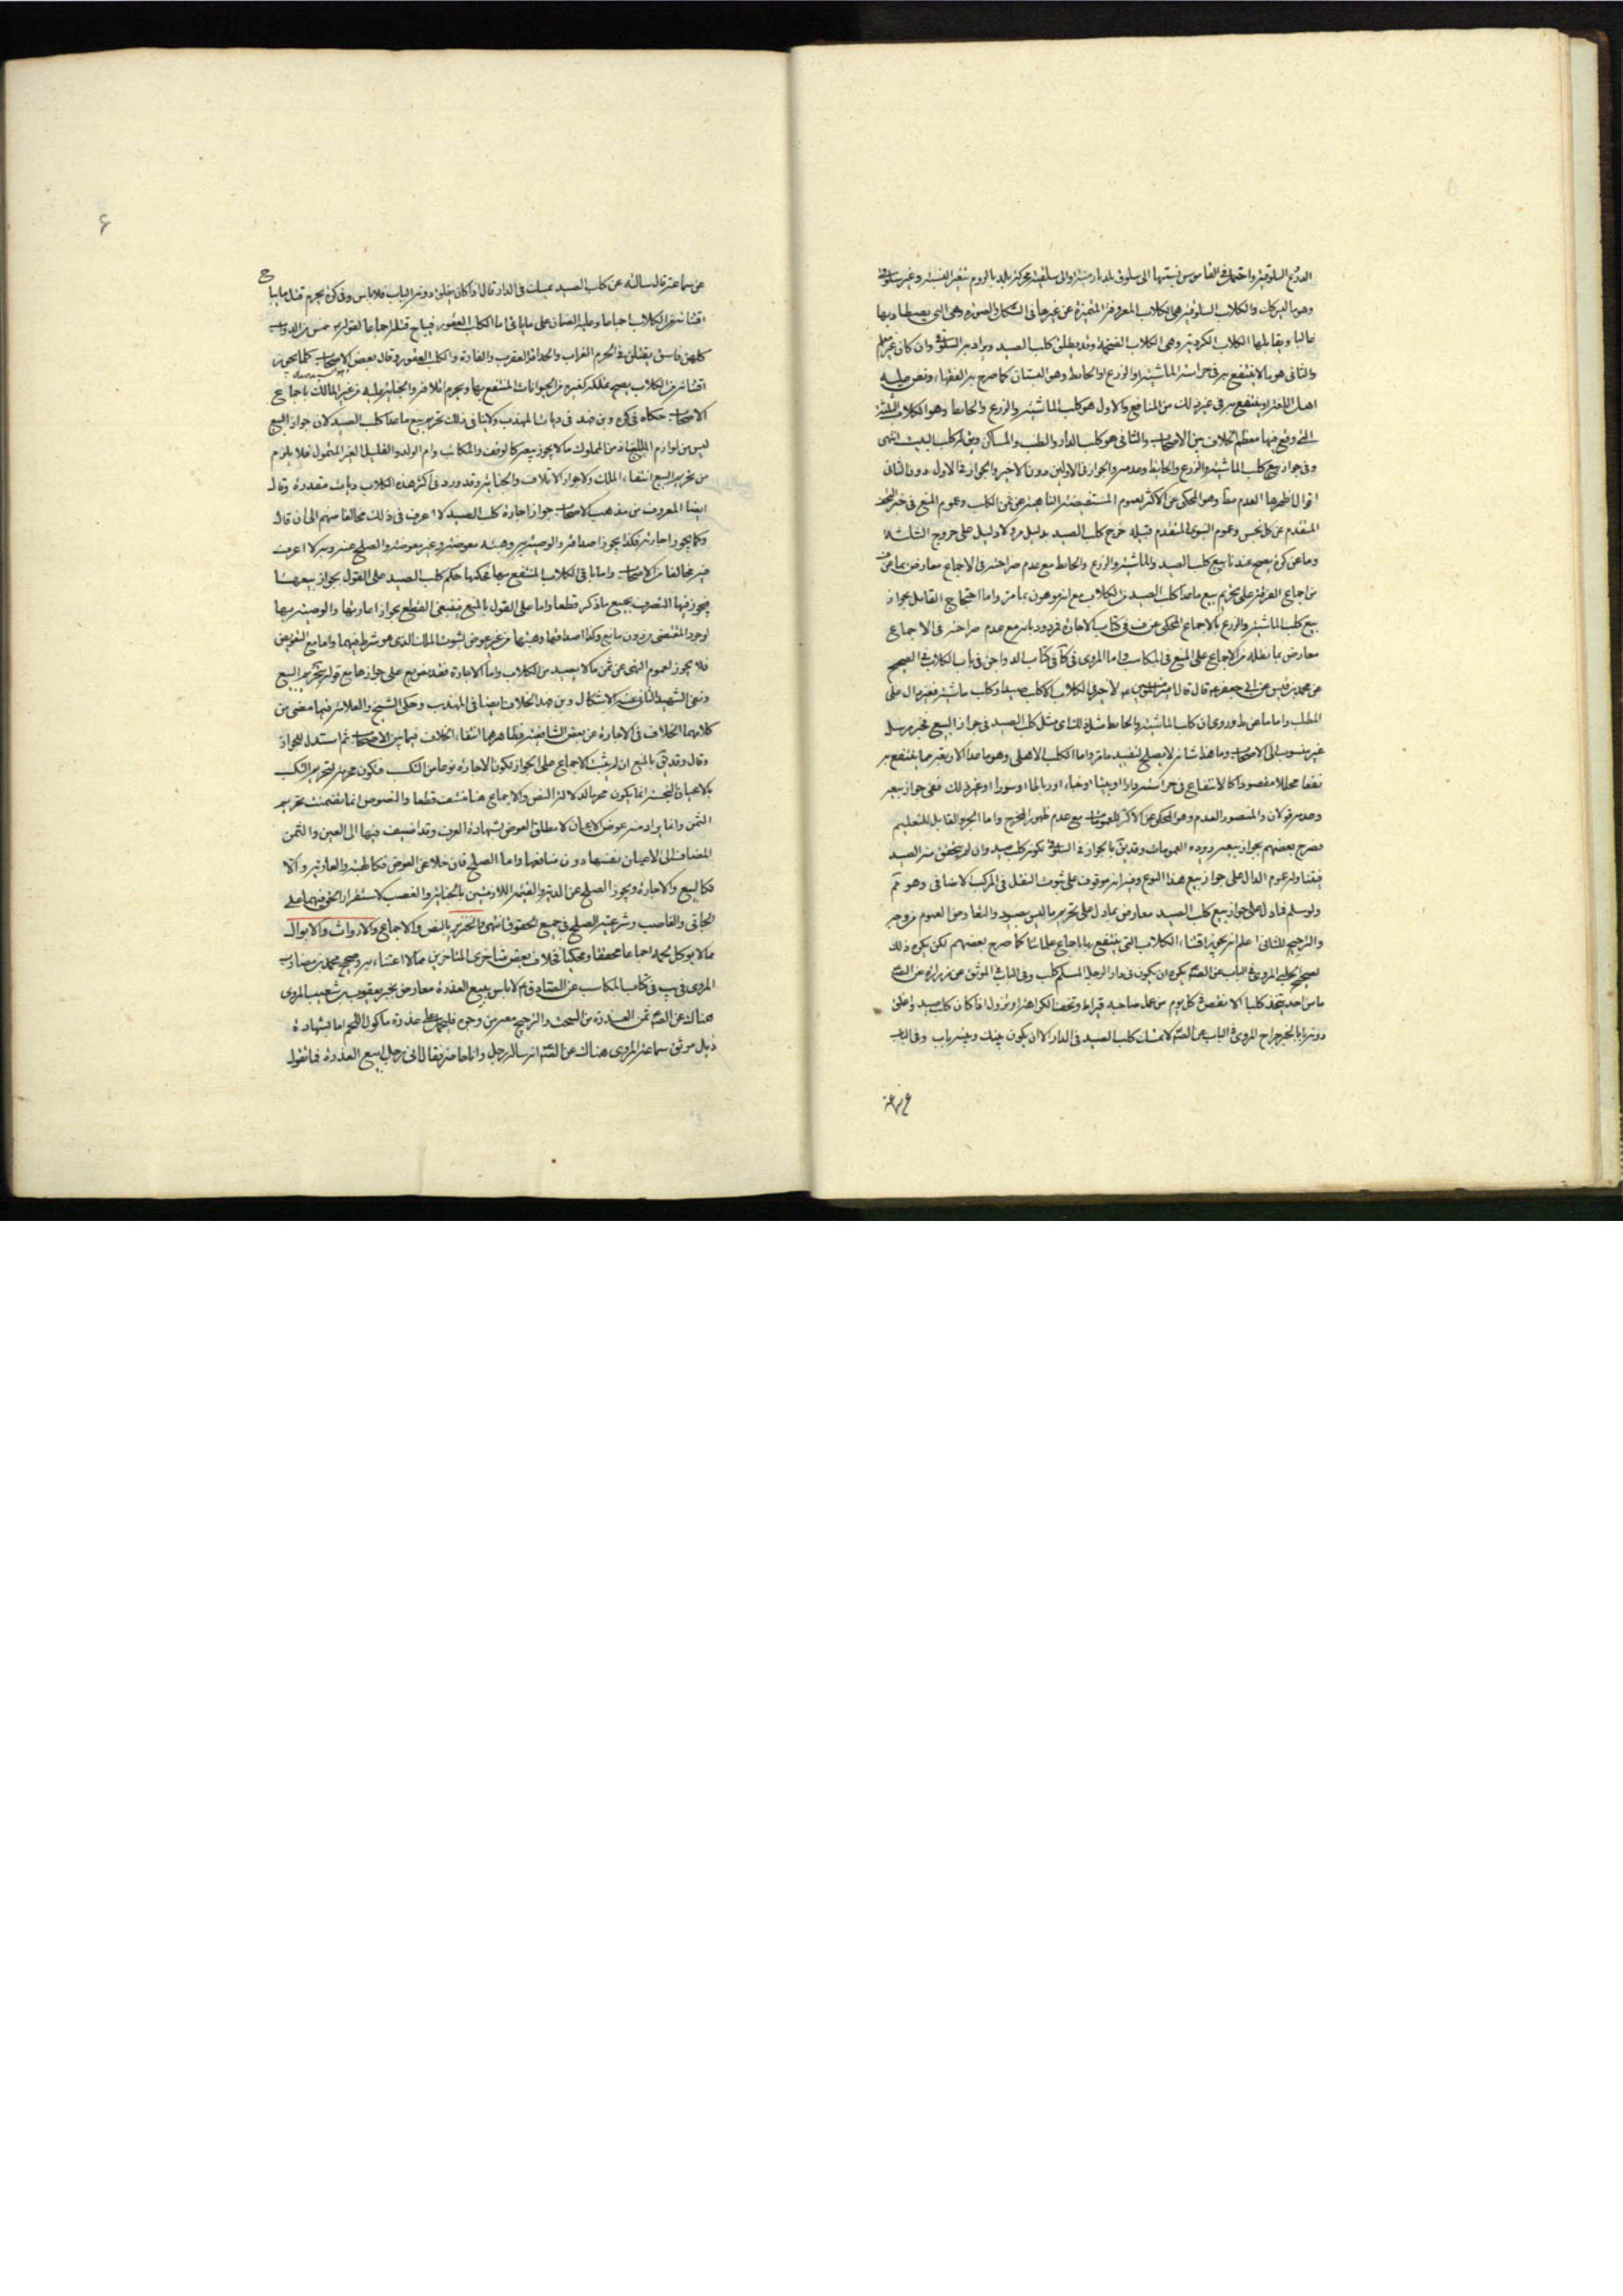 الدروع السلوقية واحتمل في القاموس نسبتها الى سلوق بلد بارمينية او الى سلقية محركة بلد بالروم
وهو ما الكلاب السلوقية هي الكلاب المعروفة المتميزة عن غيرها في الشكل والصورة وهي التي يصطاد بها
غالبا ويقابلها الكلاب الكردية وهي الكلاب الضخمة وقد يطلق كلب الصيد ويراد به السلوقي وان كان غير معلم
والثاني هو ما لا ينتفع به في حراسة الماشية او الزرع او الحائط وهو البستان كما صرح به الفقهاء ونص عليه
اهل اللغة او ينتفع به في غير ذلك من المنافع والاول هو كلب الماشية والزرع والحائط وهو الكلاب الثلثة
التي وقع فيها معظم الخلاف بين الاصحاب والثاني هو كلب الدار والمساكن ويقال كلب البيت انتهى
وفي جواز بيع كلب الماشية والزرع والحائط وعدمه والجواز في الاولين دون الاخير والجواز في الاول دون الثاني
اقوال اظهرها العدم وهو المحكي عن الاكثر لعموم المستفيضة الناهية عن ثمن الكلب وعموم المنع في خبر
المتقدم عن كل نجس وعموم النبوي المتقدم قبيله خرج كلب الصيد بدليل ولا دليل على خروج الثلثة
وما عن كره يصح عندنا بيع كلب الصيد والماشية والزرع والحائط مع عدم صراحته في الاجماع معارض بما عن
من اجماع الفرقة على تحريم بيع ما عدا كلب الصيد من الكلاب مع انه موهون بما مر واما احتجاج القائل بجواز
بيع كلب الماشية والزرع بالاجماع المحكي عن ف في كتاب الاجارة فمردود بانه مع عدم صراحته في الاجماع
معارض بما نقله من الاجماع على المنع في المكاسب واما المروي في كا في كتاب الدواجن في باب الكلاب في الصحيح
عن محمد بن قيس عن ابي جعفر ع قال قال امير المؤمنين ع لا خير في الكلاب الا كلب صيد او كلب ماشية فغير دال على
المطلب واما ما عن ط وروي ان كلب الماشية والحائط مثل كلب الصيد في جواز البيع فخبر مرسل
غير منسوب الى الاصحاب وما هذا شانه لا يصلح لتقييد ما مر واما الكلب الاهلي وهو ما عدا الاربعة مما ينتفع به
نفعا محللا مقصودا كالانتفاع في حراسة دار او بيت او خباء او رباط او سور او غير ذلك ففي جواز بيعه
وعدمه قولان والمنصور العدم وهو المحكي عن الاكثر للعمومات مع عدم ظهور المخرج واما الجرو القابل للتعليم
فصرح بعضهم بجواز بيعه ورده العمومات وقد يق بالجواز في السلوقي لكونه كلب صيد وان لم يتحقق منه الصيد
فيتناوله عموم الدال على جواز بيع هذا النوع وفيه انه موقوف على ثبوت النقل في المركب الاضافي وهو مم
ولو سلم فما دل على جواز بيع كلب الصيد معارض بما دل على تحريم ما ليس بصيود والتعارض العموم من وجه
والترجيح للثاني اعلم انه يجوز اقتناء الكلاب التي ينتفع بها باجماع علمائنا كما صرح بعضهم لكن يكره ذلك
لصحيح الحلبي المروي في الباب عن الص ع يكره ان يكون في دار الرجل المسلم كلب وفي الباب في الموثق عن زرارة عن الص ع
ما من احد يتخذ كلبا الا نقص في كل يوم من عمل صاحبه قيراط وتخف الكراهة او تزول اذا كان كلب صيد واغلق
دونه بابا لخبر جراح المروي في الباب عن الص ع لا تمسك كلب الصيد في الدار الا ان يكون بينك وبينه باب وفي الباب
عن سماعة
۶
عن سماعة قال سالته عن كلب الصيد يمسك في الدار قال اذا كان يغلق دونه الباب فلا باس وفي كره يحرم قتل ما يباح
اقتنائه من الكلاب اجماعا وعليه الضمان على ما ياتي اما الكلب العقور فيباح قتله اجماعا لقوله خمس من الدواب
كلهن فاسق يقتلن في الحرم الغراب والحداة والعقرب والفارة والكلب العقور وقال بعض الاصحاب كلما يجوز
اقتنائه من الكلاب يصح تملكه كغيره من الحيوانات المنتفع بها ويحرم اتلافه والجناية عليه من غير المالك باجماع
الاصحاب حكاه في كره وبن فهد في ديات المهذب ولا ينافي ذلك تحريم بيع ما عدا كلب الصيد لان جواز البيع
ليس من لوازم الملك فان من المملوك ما لا يجوز بيعه كالوقف والمكاتب وام الولد والقليل الغير المتمول فلا يلزم
من تحريم البيع انتفاء الملك ولا جواز الاتلاف والجناية وقد ورد في اكثر هذه الكلاب ديات مقدرة وقال
ايضا المعروف من مذهب الاصحاب جواز اجارة كلب الصيد لا اعرف في ذلك مخالفا منهم الى ان قال
وكما يجوز اجارته فكذا يجوز اصداقه والوصية به وهبته معوضة وغير معوضة والصلح عنه وبه لا اعرف
فيه مخالفا من الاصحاب واما باقي الكلاب المنتفع بها فحكمها حكم كلب الصيد على القول بجواز بيعها
فيجوز فيها التصرف بجميع ما ذكر قطعا واما على القول بالمنع فينبغي القطع بجواز اعارتها والوصية بها
لوجود المقتضي من دون مانع وكذا اصداقها وهبتها من غير عوض لثبوت الملك الذي هو شرط فيهما واما مع التعويض
فلا يجوز لعموم النهي عن ثمن ما لا يصيد من الكلاب واما الاجارة فقد نص على جوازها مع قوله بتحريم البيع
ونفى الشهيد الثاني عنه الاشكال وبن فهد الخلاف ايضا في المهذب وحكى الشيخ والعلامة فيما مضى من
كلامهما الخلاف في الاجارة عن بعض الشافعية وظاهرهما انتفاء الخلاف فيما بين الاصحاب ثم استدل للجواز
وقال وقد يق بالمنع ان لم يثبت الاجماع على الجواز لكون الاجارة نوعا من التكسب فتكون محرمة لتحريم التكسب
بالاعيان النجسة انما يكون محرما لدلالة النص والاجماع هنا منتف قطعا والنصوص انما تضمنت تحريم
الثمن وانما يراد منه عوض الاعيان لا مطلق العوض بشهادة العرف وقد اضيف فيها الى العين والثمن
المضاف الى الاعيان نفسها دون منافعها واما الصلح فان خلا عن العوض فكالهبة والعارية والا
فكالبيع والاجارة ويجوز الصلح عن الدية والقيمة اللازمتين بالجناية والغصب لاستقرار الحق فيهما على
الجاني والغاصب وشرعية الصلح في جميع الحقوق انتهى والخنزير بالنص والاجماع والارواث والابوال
مما لا يوكل لحمه اجماعا محققا ومحكيا فخلاف بعض متاخري المتاخرين مما لا اعتناء به وصحيح محمد بن مضارب
المروي في يب في كتاب المكاسب عن الصادق ع لا باس ببيع العذرة معارض بخبر يعقوب بن شعيب المروي
هناك عن الص ع ثمن العذرة من السحت والترجيح معه من وجوه فليحمل على عذرة ماكول اللحم اما بشهادة
ذيل موثق سماعة المروي هناك عن الص ع انه ساله رجل وانا حاضر فقال اني رجل ابيع العذرة فما تقول